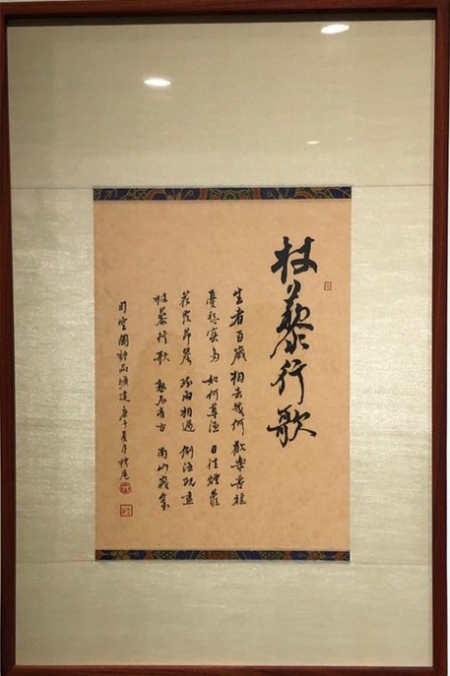 杖藜行歌
生者百歲 相去幾何 歡樂苦短
憂愁實多 如何尊酒 日往煙蘿
花覆茆簷 疏雨相過 倒酒既盡
杖藜行歌 孰不有古 南山峨峨
司空圖詩品曠達 庚子夏月